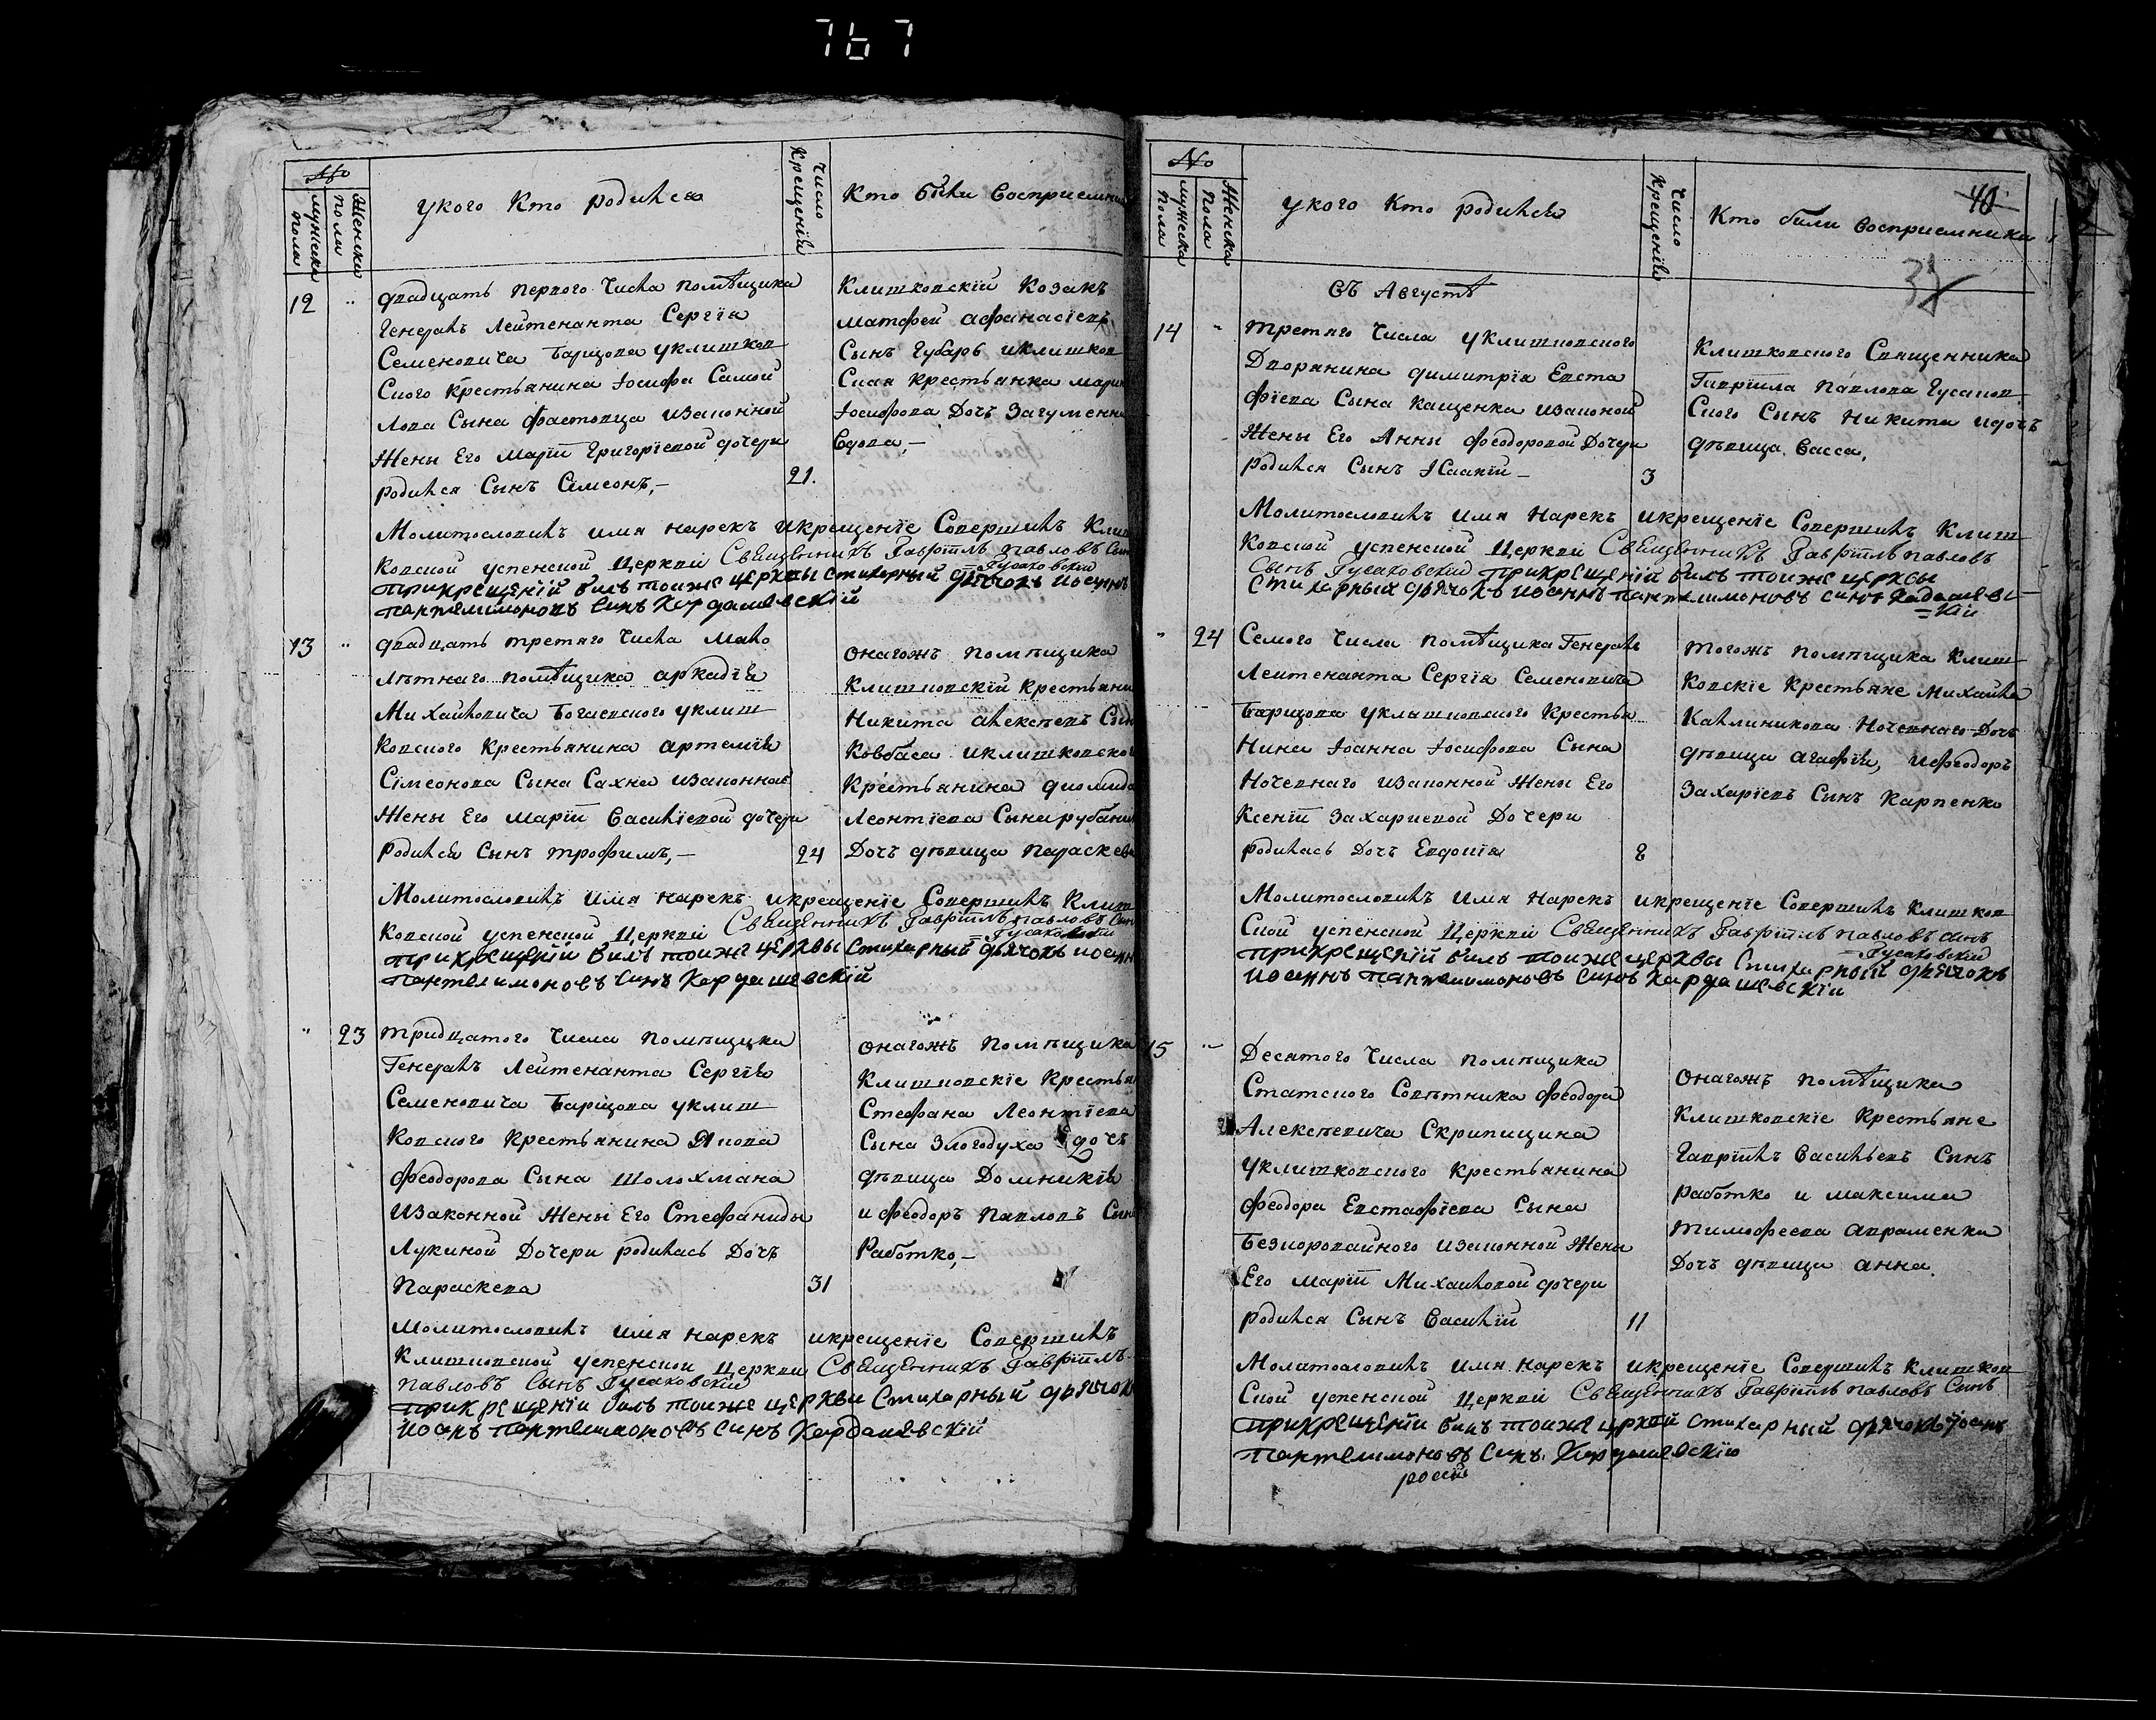 767
№
мужеска пола
Женска пола
у кого Кто родился
Число Крещенія
Кто были Восприемни
12
двадцать перваго Числа помѣщика
Генералъ Лейтенанта Сергія
Семеновича Барщова уклишков
Ского крестьянина Іосифа Самой
лова Сына Фастовца изаконной
Жены Его Маріи Григоріевой дочери
родился Сынъ Сѵмеонъ,–
21.
Клишковскій Козакъ
Матфей Афанасіевъ
Сынъ Губарь иклишков
Ская крестьянка Мари
Іосифова Дочь Загуменн
Вдова,–
Молитвословилъ имя нарекъ икрещеніе Совершилъ Клиш
Ковской успенской Церкви Священникъ Гавріилъ Павловъ Сын
Гусаковскій
прикрещеніи билъ тоиже церквы стихарный дячокъ иоаннъ
пантелимоновъ Синъ Кардашевскій
13
двадцать третяго Числа Мало
лѣтнаго помѣщика аркадія
Михайловича Богаевского уклиш
Ковского Крестьянина артемія
Сѵмеонова Сына Сахна изаконной
Жены Его маріи Василіевой дочери
родился Сынъ трофимъ,–
24
онагожъ помѣщика
Клишковскій Крестьяни
Никита алексѣевъ Сын
Ковбаса иклишковског
Крестьянина диомида
Леонтіева Сына рубан
Дочь дѣвица параскева
Молитвословилъ имя нарекъ икрещеніе Совершилъ Клиш
Ковской успенской Церкви Священникъ Гавріилъ павловъ Син
Гусаковскій
прикрещеніи билъ тоиже церквы стихарный дячокъ иоанн
пантелимоновъ Синъ Кардашевскій
23
тридцатого Числа помѣщика
Генералъ Лейтенанта Сергія
Семеновича Барщова уклиш
Ковского Крестьянина Якова
Феодорова Сына Шолохмана
изаконной Жены Его Стефаниды
Лукиной Дочери родилась Дочь
Параскева
31
онагожъ помѣщика
Клишковскіе Крестьян
Стефана Леонтіева
Сына Злогодуха дочь
дѣвица Домникія
и феодоръ Павловъ Сын
Работко,–
Молитвословилъ имя нарекъ икрещеніе Совершилъ
Клишковской успенской Церкви Священникъ Гавріилъ
павловъ Сынъ Гусаковскій
прикрещеніи билъ тоиже церкви Стихарный дьячок
иоанъ пантелимоновъ Синъ Кардашевскій
№
мужеска пола
Женска пола
у кого Кто родился
Число Крещенія
Кто были восприемники
40
Въ Августѣ
14
третяго Числа уклишковского
Дворянина димитрія Евста
фіева Сына Кащенка изаконой
Жены Его Анны Феодоровой Дочери
родился Сынъ Ісаакій –
3
Клишковского Священника
Гавріила Павлова Гусаков
Ского Сынъ Никита идочь
дѣвица Васса,
Молитвословилъ имя нарекъ икрещеніе Совершилъ Клиш
Ковской успенской Церкви Священникъ Гавріилъ павловъ
Сынъ Гусаковскій прикрещеніи билъ тоиже церквы
Стихарный дячокъ иоаннъ пантелимоновъ синъ Кадашевс
кій
24
Семого Числа помѣщика Генералъ
Лейтенанта Сергія Семеновича
Барщова уклышковского Крестья
Нина Іоанна Іосифова Сына
Ночевнаго изаконной Жены Его
Ксеніи Захариевой Дочери
родилась Дочь Евдокія
8
тогожъ помѣщика Клиш
Ковскіе Крестьяне Михайла
Каллиникова Ночевнаго Дочь
дѣвица агафія, ифеодоръ
Захаріевъ Сынъ Карпенко
Молитвословилъ имя нарекъ икрещеніе Совершилъ Клишков
Ской успенской Церкви Священникъ Гавріилъ павловъ синъ
Гусаковский
прикрещеніи билъ тоиже церквы Стихарный дячокъ
иоаннъ пантелимоновъ Синъ Кардашевскій
15
Десятого Числа помѣщика
Статского Совѣтника Феодора
Алексѣевича Скрипицина
уклишковского Крестьянина
Феодора Евстафіева Сына
Безкоровайного изаконной Жены
Его маріи Михайловой дочери
родился Сынъ Василій
11
онагожъ помѣщика
Клишковскіе Крестьяне
Гавріилъ Васильевъ Синъ
работко и максима
тимофеева авраменка
Дочь дѣвица анна.
Молитвословилъ имя нарекъ икрещеніе Совершилъ Клишков
Ской успенской Церкви Священникъ Гавріилъ павловъ Синъ
прикрещеніи билъ тоиже цркви стихарный дячокъ иоанъ
пантелимоновъ Синъ Кардашевскій